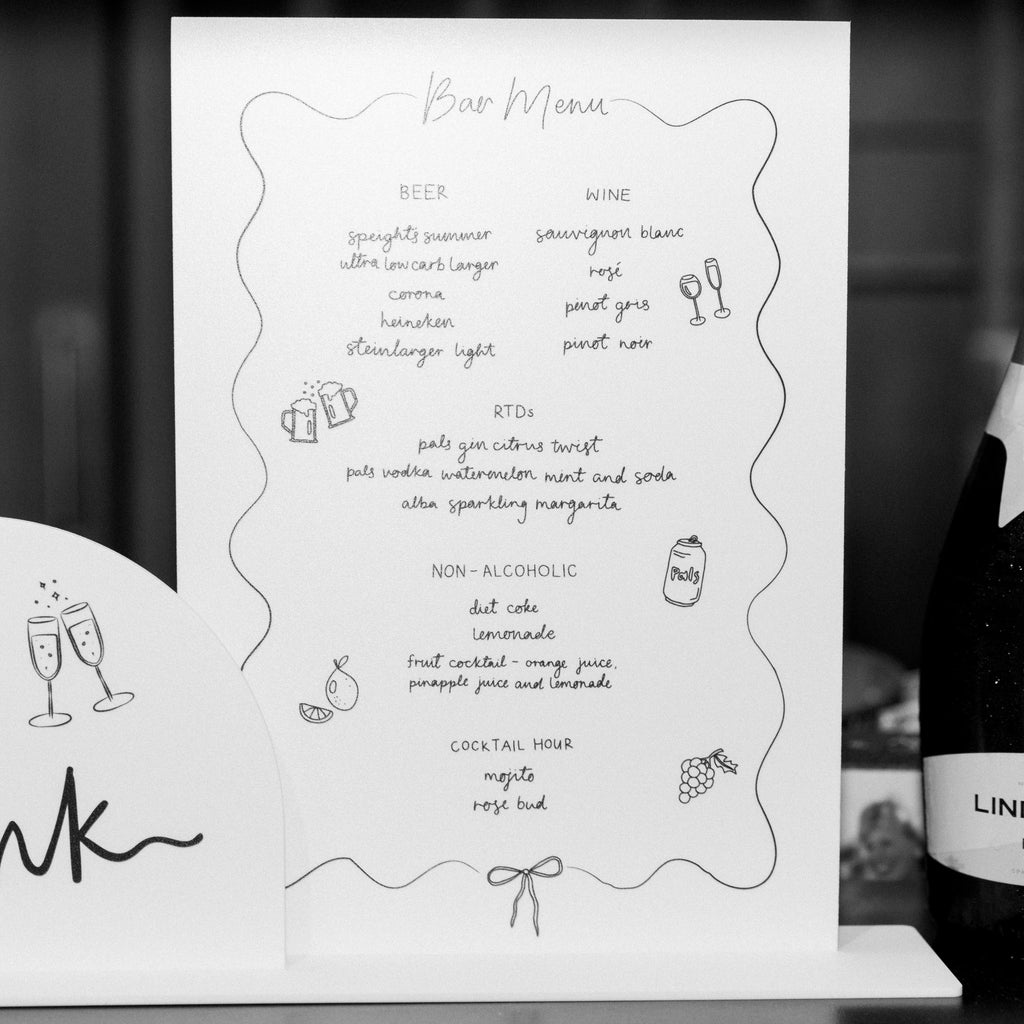 Bar Menu
BEER
speight's summer
ultra low carb larger
corona
heineken
steinlarger light
WINE
sauvignon blanc
rosé
pinot gris
pinot noir
RTDs
pals gin citrus twist
pals vodka watermelon mint and soda
alba sparkling margarita
Pals
NON-ALCOHOLIC
diet coke
lemonade
fruit cocktail - orange juice,
pinapple juice and lemonade
COCKTAIL HOUR
mojito
rose bud
nk
LIND